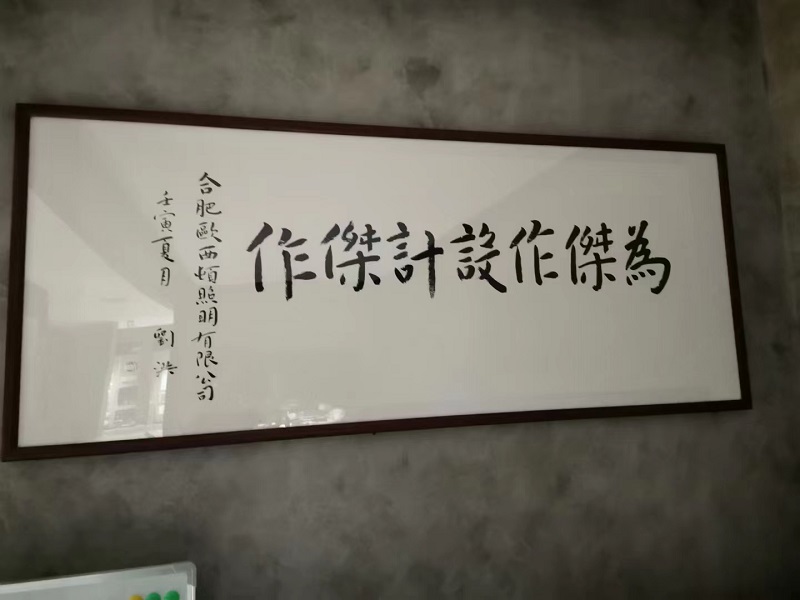 為傑作設計傑作
合肥歐西頓照明有限公司
壬寅夏月 劉洪